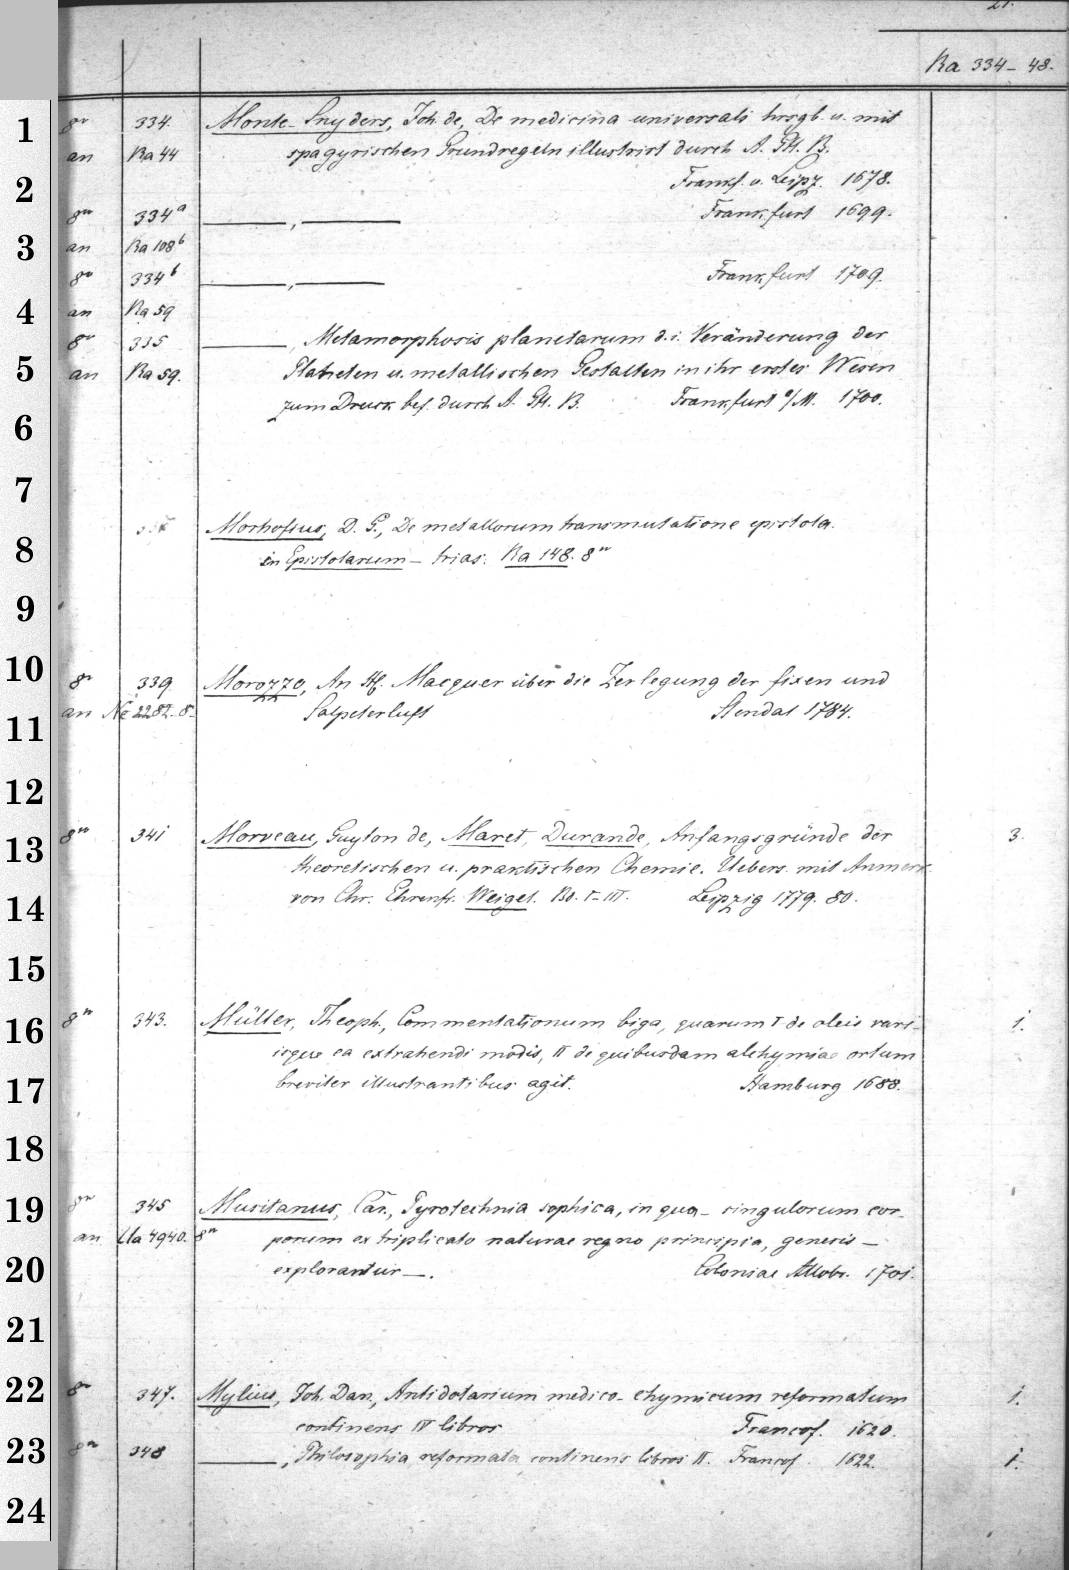 21.
Ra 334-48.
8º 334. Monte-Snyders, Joh. de, De medicina universali hrsgb. u. mit
an Ra 44 spagyrischen Grundregeln illustrirt durch A. Gtl. B.
Frankf. u. Leipz. 1678.
8º 334a ———, ——— Frankfurt 1699.
an Ra 108b
8º 334b ———, ——— Frankfurt 1709.
an Ra 59
8º 335 ———, Metamorphosis planetarum d. i. Veränderung der
an Ra 59. Planeten u. metallischen Gestalten in ihr erstes Wesen
zum Druck bef. durch A. Gtl. B. Frankfurt a/M. 1700.
Morhofius, D. G., De metallorum transmutatione epistola.
in Epistolarum – trias. Ra 148. 8º
8º 339 Morozzo, An H. Macquer über die Zerlegung der fixen und
an Ne 2282. 8. Salpeterluft Stendal 1784.
8º 341 Morveau, Guyton de, Maret, Durande, Anfangsgründe der 3.
theoretischen u. praktischen Chemie. Uebers. mit Anmerk.
von Chr. Ehrenfr. Weigel. Bd. I-III. Leipzig 1779. 80.
8º 343. Müller, Theoph., Commentationum biga, quarum I de oleis vari- 1.
isque ea extrahendi modis, II de quibusdam alchymiae ortum
breviter illustrantibus agit. Hamburg 1688.
8º 345 Musitanus, Car., Pyrotechnia sophica, in qua – singulorum cor-
an Ua 4940. 8º porum ex triplicato naturae regno principia, genesis –
explorantur –. Coloniae Allobr. 1701.
8º 347. Mylius, Joh. Dan., Antidotarium medico-chymicum reformatum 1.
continens IV libros Francof. 1620.
8º 348 ———, Philosophia reformata continens libros II. Francof. 1622. 1.
1
2
3
4
5
6
7
8
9
10
11
12
13
14
15
16
17
18
19
20
21
22
23
24